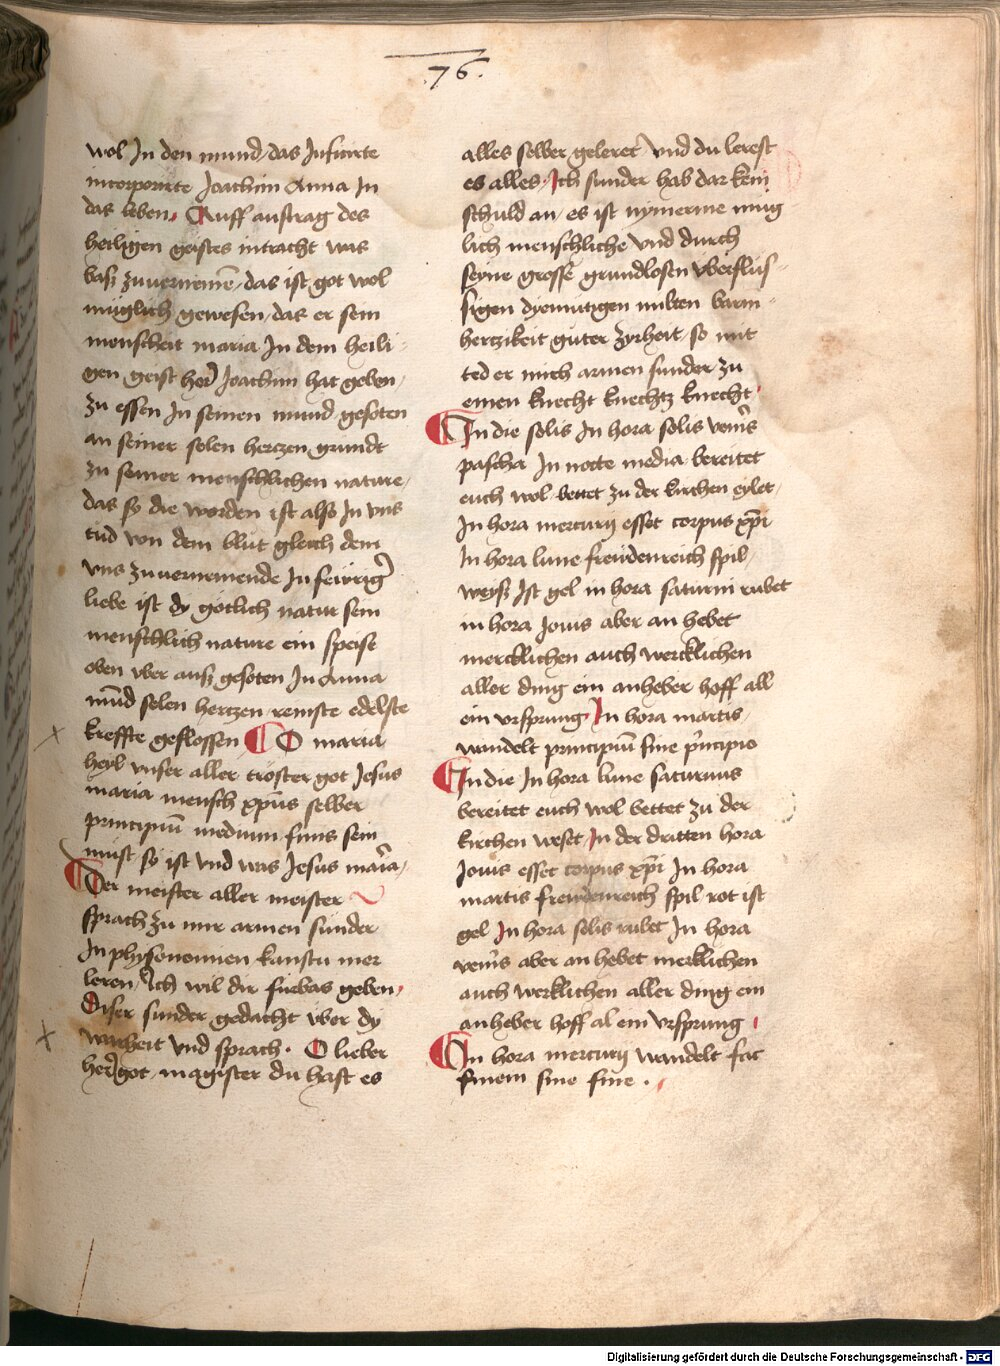 76.
wol In den mund, das Inficirte
incorporirte Joachim Anna In
das leben. Auff austrag des
heiligen geistes intracht was
bass zuuernemen, das ist got wol
müglich gewesen, das er sein
menscheit maria In dem heili-
gen geist her Joachim hat geben,
zu essen In seinen mund gesoten
an seiner selen hertzen grundt
zu seiner menschlichen nature,
das so die worden ist also In vns
tud von dem blut gleich dem
vns zuuernemende In feirriger
liebe ist dy götlich natur sein
menschlich nature ein speise
oben vber auss gesoten In Anna
mund selen hertzen reinste edelste
kreffte geflossen O maria
heyl vnser aller tröster got Jesus
maria mensch xpūs selber
principiū medium finis sein
must so ist vnd was Jesus maria,
Der meister aller meister
sprach zu mir armen sünder
In physonomien kanstu mer
leren, Ich wil dir fürbas geben,
Diser sunder gedacht vber dy
warheit vnd sprach. O lieber
her got, magister du hast es
alles selber geleret vnd du lerest
es alles. Ich sunder hab dar kein
schuld an, es ist nymerme müg
lich menschliche vnd durch
seyne grosse grundlosen vberflüs-
sigen dyemütigen milten barm-
hertzikeit guter zyrheit, so mit
ted er mich armen sunder zu
einen knecht knechtz knecht.
In die solis In hora solis veneris
pascha In nocte media bereitet
euch wol bettet zu der kirchen eylet,
In hora mercurij esset corpus xpi
In hora lune freudenreich spil,
weyss Ist gel in hora saturni rubet
in hora Jouis aber an hebet
mercklichen auch wercklichen
aller ding ein anheber hoff all
ein vrsprung, In hora martis,
wandelt principiū sine principio
In die In hora lune saturnus
bereitet euch wol bettet zu der
kirchen weset, In der dritten hora
Jouis esset corpus xpi In hora
martis freudenreich spil rot ist
gel In hora solis rubet In hora
veneris aber an hebet mercklichen
auch wercklichen aller ding ein
anheber hoff al ein vrsprung
In hora mercurij wandelt fac
finem sine fine.
Digitalisierung gefördert durch die Deutsche Forschungsgemeinschaft - DFG